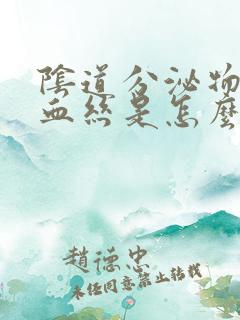 陰道分泌物
血絲是怎麼
趙德忠
未任同意禁止轉載